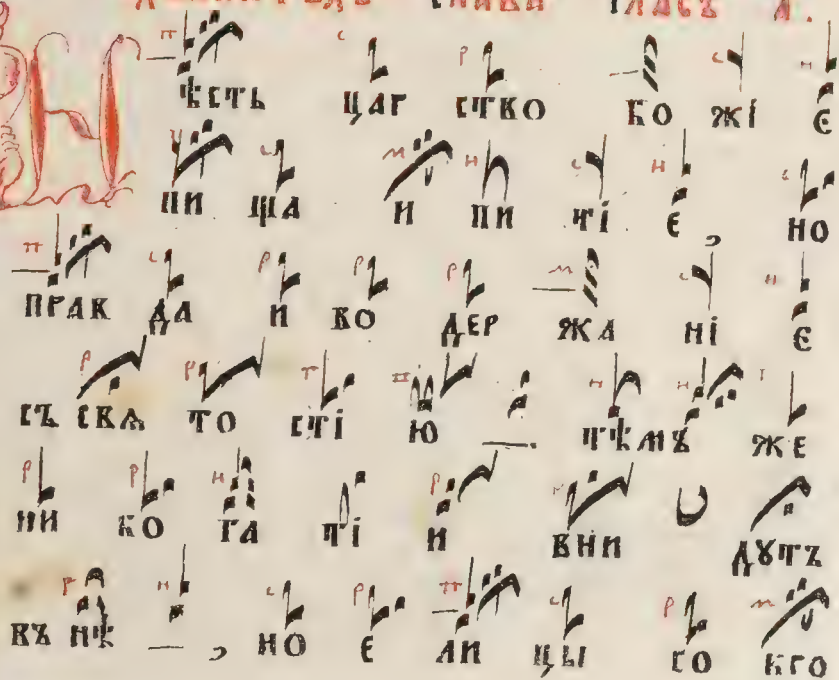 гласъ а҃.
Нѣсть цар ство бо жі є
пи ща и пи ті є, но
прав да и во дер жа ні є
съ свѧ то сті ю тѣмъ же
ни бо га ті и вни дꙋтъ
въ нѣ, но є ли цы со кро